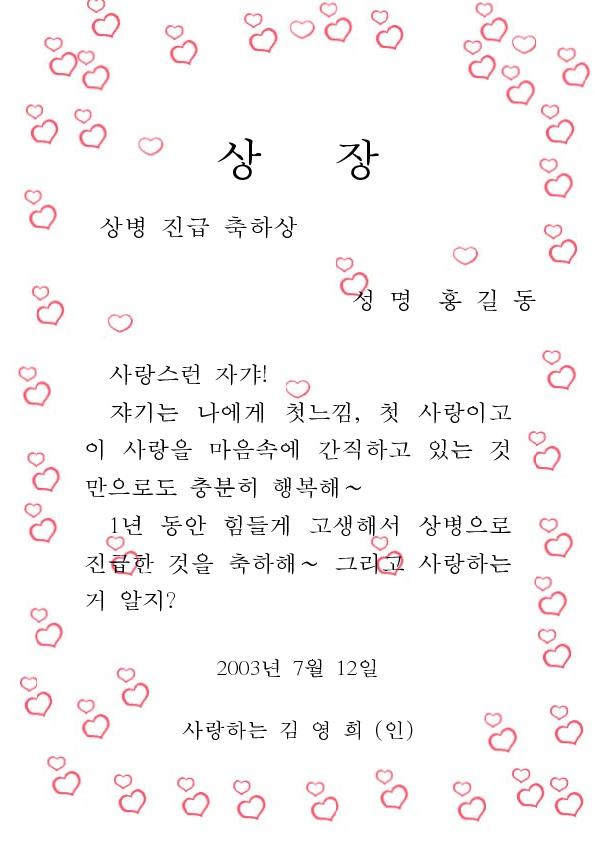 상 장
상병 진급 축하상
성 명 홍 길 동
사랑스런 자갸!
쟈기는 나에게 첫느낌, 첫 사랑이고
이 사랑을 마음속에 간직하고 있는 것
만으로도 충분히 행복해~
1년 동안 힘들게 고생해서 상병으로
진급한 것을 축하해~ 그리고 사랑하는
거 알지?
2003년 7월 12일
사랑하는 김 영 희 (인)